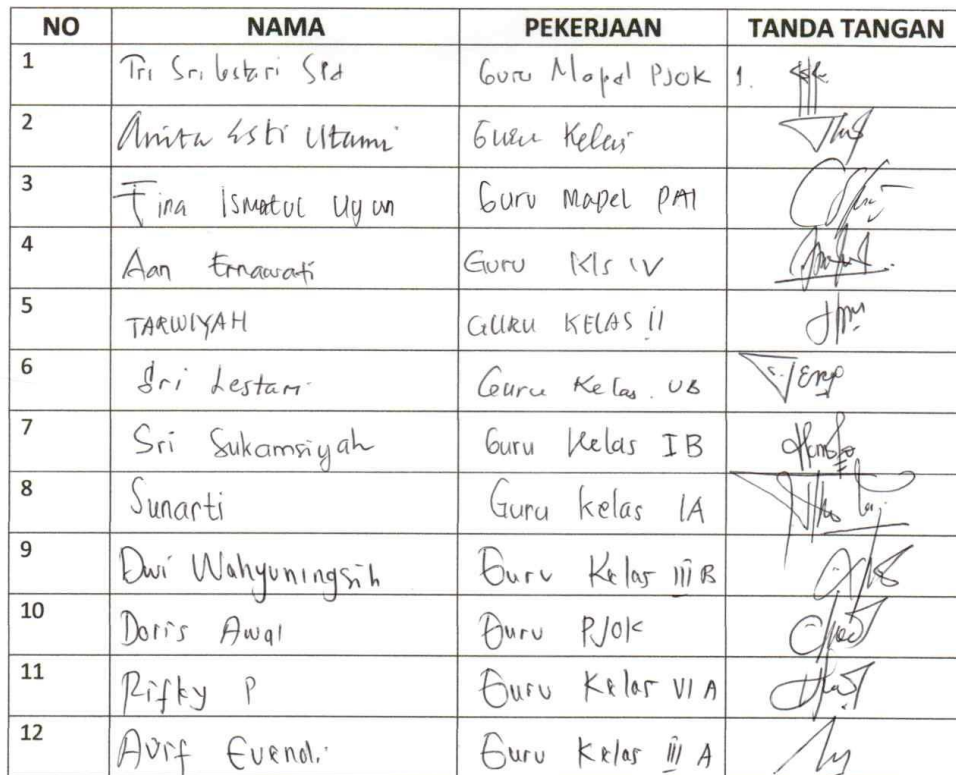 NO NAMA PEKERJAAN TANDA TANGAN
1 Tri Sri lestari SPd Guru Mapel PJOK 1.
2 Anita Esti Utami Guru Kelas
3 Fina Ismatul Uyun Guru Mapel PAI
4 Aan Ernawati Guru Kls IV
5 TARWIYAH GURU KELAS II
6 Sri Lestari Guru Kelas VB
7 Sri Sukamsiyah Guru Kelas IB
8 Sunarti Guru Kelas IA
9 Dwi Wahyuningsih Guru Kelas III B
10 Doris Awal Guru PJOK
11 Rifky P Guru Kelas VI A
12 Avif Evendi Guru Kelas III A